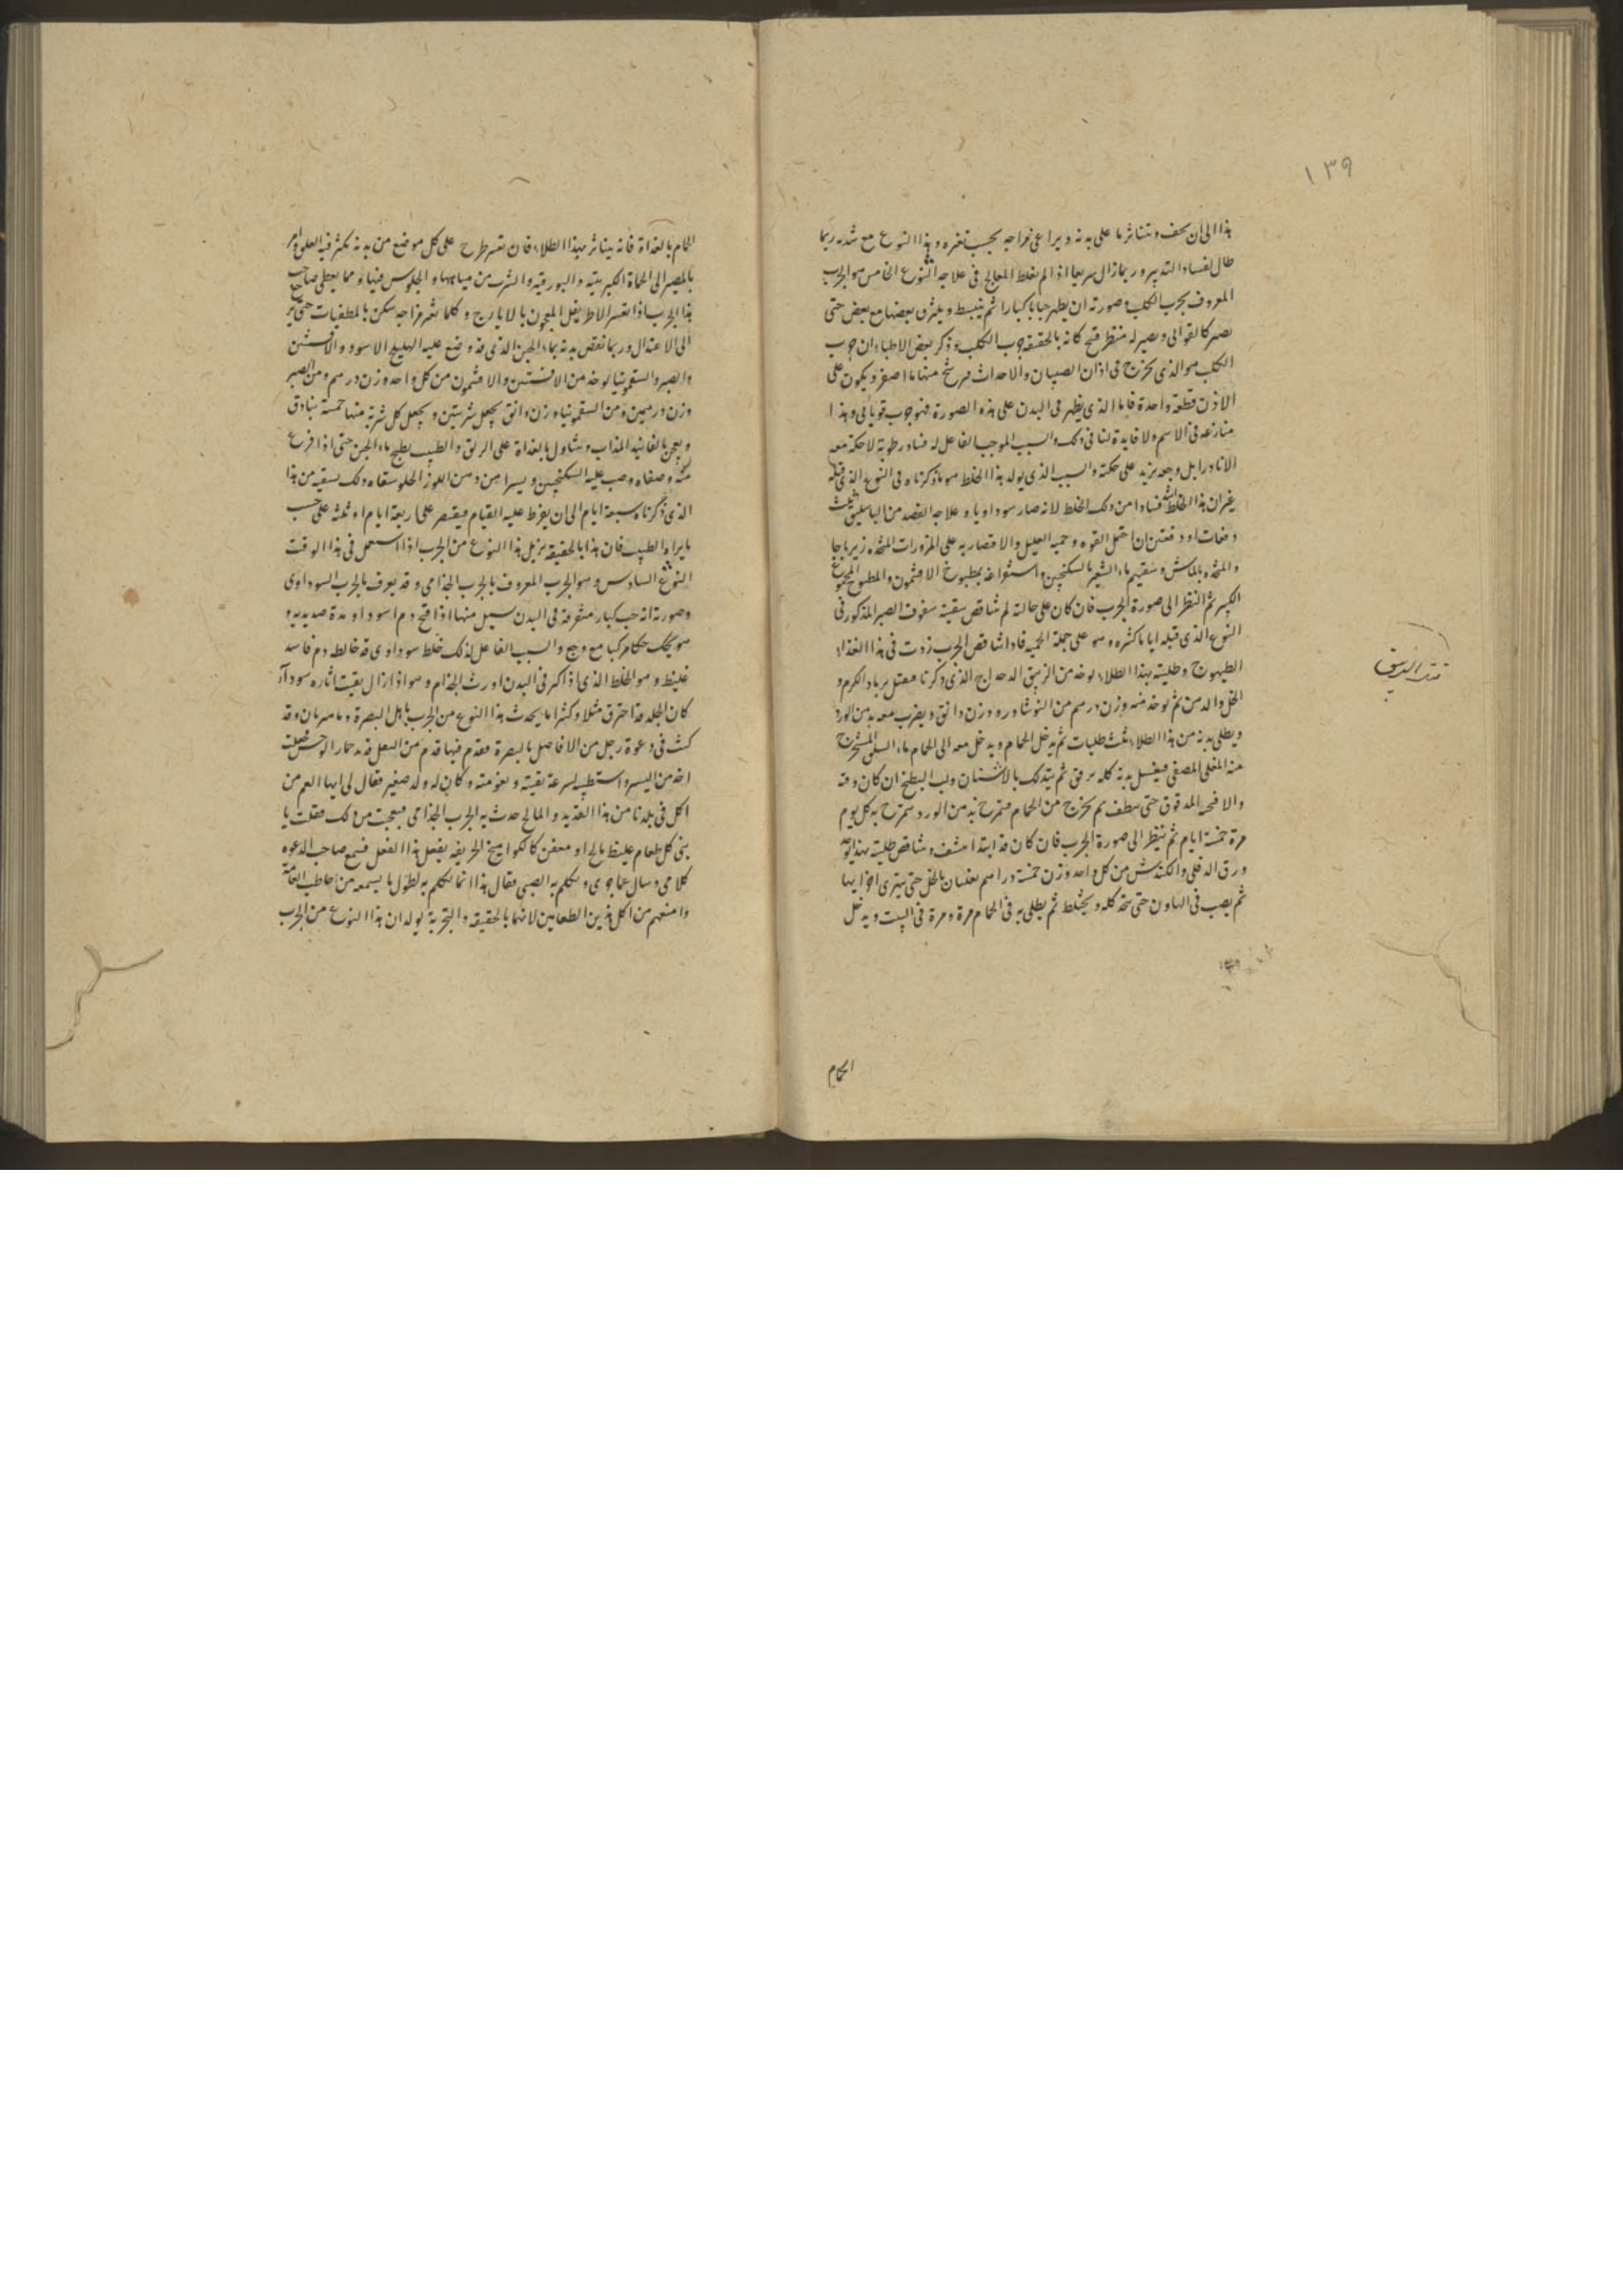 ١٣٩
هذا الى ان يجف ويتناثر ما على بدنه ويراعى مزاجه بحسب تغيره وهذا النوع مع شدته ربما
طال لفساد التدبير وربما زال سريعا اذا لم يغلط المعالج فى علاجه النوع الخامس هو الجرب
المعروف بجرب الكلب وصورته ان يظهر حبابا كبارا ثم ينبسط ويلتزق بعضها مع بعض حتى
يصير كالقوابى ويصير له منظر قبيح كانه بالحقيقة جرب الكلب وذكر بعض الاطباء ان جرب
الكلب هو الذى يخرج فى اذان الصبيان والاحداث فيرشح منها ما اصفر ويكون على
الاذن قطعة واحدة فاما الذى يظهر فى البدن على هذه الصورة فهو جرب قوبائى وهذا
منازعه فى الاسم ولا فايدة لنا فى ذلك والسبب الموجب الفاعل له فساد رطوبة لا حكة معه
الا نادرا بل وجعه يزيد على حكته والسبب الذى يولد هذا الخلط هو ما ذكرناه فى النوع الذى قبله
غير ان هذا الخلط اشد فسادا من ذلك الخلط لانه صار سوداويا وعلاجه الفصد من الباسليق ثلث
دفعات او دفعتين ان احتمل القوه وحميه العليل والاقتصار به على المزورات المتخذه زيرباجا
والمتخذه بالماش وسقيهم ماء الشعير بالسكنجبين واستفراغه بمطبوخ الافتيمون والمطبوخ
الكبير ثم النظر الى صورة الجرب فان كان على حالته لم يتناقص سقيته سفوف الصبر المذكور فى
النوع الذى قبله اياما كثيره وهو على جملة الحميه فاذا تناقص الجرب زدت فى هذا الغذاء
الطيهوج وطليته بهذا الطلاء يوخذ من الزيبق الدحداح الذى ذكرنا مقتل برماد الكرم و
الخل والدهن ثم يوخذ منه وزن درهم من النوشادر وزن دانق ويضرب معه بدهن الورد
ويطلى بدنه من هذا الطلاء ثلث طليات ثم يدخل الحمام ويدخل معه الى الحمام ماء السلق المستخرج
منه المغلى المصفى فيغسل بدنه كله برفق ثم يتدلك بالاشنان ولب البطيخ ان كان وقته
والا فحبه المدقوق حتى ينظف ثم يخرج من الحمام فيتمرخ بدهن الورد يتمرخ به كل يوم
مرة خمسة ايام ثم ينظر الى صورة الجرب فان كان قد ابتدا ينشف ويتناقص طليته بهذا
ورق الدفلى والكندش من كل واحد وزن خمسة دراهم يغليان بالخل حتى يتهرى اجزايها
ثم يصب فى الهاون حتى يتحد كله ويختلط ثم يطلى به فى الحمام مرة ومرة فى البيت ويدخل
الحمام
الحمام بالغداة فانه يتناثر بهذا الطلاء فان تعسر طرح على كل موضع من بدنه يكثر فيه العلق وامر
بالمصير الى الحماة الكبريتيه والبورقيه والشرب من مياهها والجلوس فيها ومما يعطى صاحب
هذا الجرب اذا تعسر الاطريفل المعجون بالايارج وكلما تغير مزاجه سكن بالمطفيات حتى
الى الاعتدال وربما نقص بدنه بماء الجبن الذى قد وضع عليه الهليلج الاسود والافسنتين
والصبر والسقمونيا يوخذ من الافسنتين والافتيمون من كل واحد وزن درهم ومن الصبر
وزن درهمين ومن السقمونيا وزن دانق يجعل شربتين ويجعل كل شربة منها خمسة بنادق
ويعجن بالفانيد المذاب ويتناول بالغداة على الريق والطبيب يطبخ ماء الجبن حتى اذا فرغ
منه وصفاه وصب عليه السكنجبين ويسيرا من دهن اللوز الحلو سقاه ذلك يسقيه من هذا
الذى ذكرناه سبعة ايام الى ان يفرط عليه القيام فيقتصر على اربعة ايام او ثلثه على حسب
ما يراه الطبيب فان هذا بالحقيقه يزيل هذا النوع من الجرب اذا استعمل فى هذا الوقت
النوع السادس وهو الجرب المعروف بالجرب الجذامى وقد يعرف بالجرب السوداوى
وصورته انه حب كبار متفرقة فى البدن يسيل منها اذا فتح دم اسود او مدة صديديه و
هو يحك حكا مركبا مع وجع والسبب الفاعل لذلك خلط سوداوى قد خالطه دم فاسد
غليظ وهو الخلط الذى اذا كثر فى البدن اورث الجذام وهو اذا زال بقيت اثاره سوداء
كان الجلد قد احترق مثلا وكثيرا ما يحدث هذا النوع من الجرب باهل البصرة وقد
كنت فى دعوة رجل من الافاضل بالبصرة فقدم فيها قدم من البقل قديد حمار الوحش فجعلت
اخذ من اليسير واستطيبه لسرعة ونعومته وكان له ولد صغير فقال لى ايها العم من
اكل فى بلدنا من هذا القديد والمالح حدث به الجرب الجذامى فعجبت من ذلك فقلت يا
بنى كل طعام غليظ مالح او معفن كالكواميخ الحريفه يفعل هذا الفعل فسمع صاحب الدعوه
كلامى وسال عما جرى وتكلم به الصبى فقال هذا انما تكلم به لطول ما يسمعه من اخاطب العامة
وامنعهم من اكل هذين الطعامين لانهما بالحقيقه والتجربة يولدان هذا النوع من الجرب